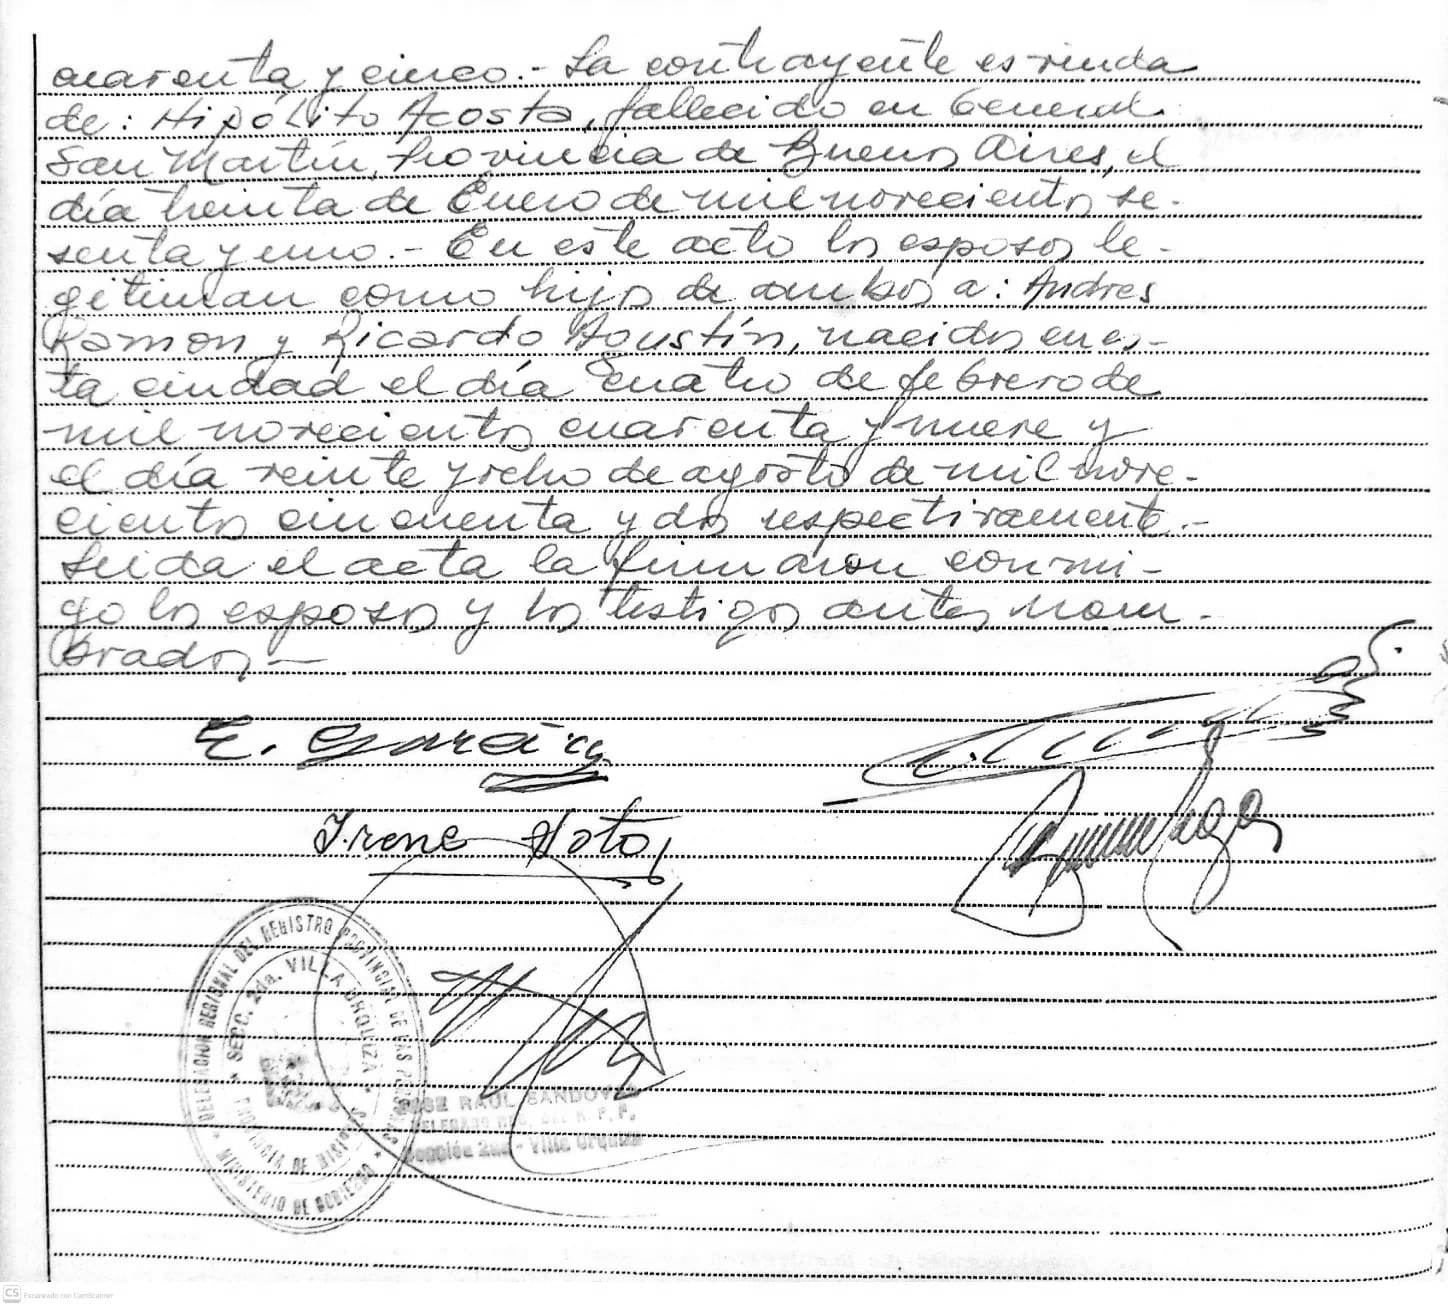 cuarenta y cinco.- La contrayente es viuda
de: Hipólito Acosta, fallecido en General
San Martín, Provincia de Buenos Aires, el
día treinta de Enero de mil novecientos se-
senta y uno.- En este acto los esposos le-
gitiman como hijos de ambos a: Andres
Ramon y Ricardo Agustín, nacidos en es-
ta ciudad el día cuatro de febrero de
mil novecientos cuarenta y nueve y
el día veinte y ocho de agosto de mil nove-
cientos cincuenta y dos respectivamente.-
Leida el acta la firmaron conmi-
go los esposos y los testigos antes nom-
brados.-
E. García
Irene Soto
DELEGACION REGIONAL DEL REGISTRO PROVINCIAL DE LAS PERSONAS
SECC. 2da. VILLA URQUIZA
PROVINCIA DE MISIONES
MINISTERIO DE GOBIERNO
JOSE RAUL SANDOVAL
DELEGADO REG. DEL R. P. P.
Sección 2da - Villa Urquiza
CS Escaneado con CamScanner